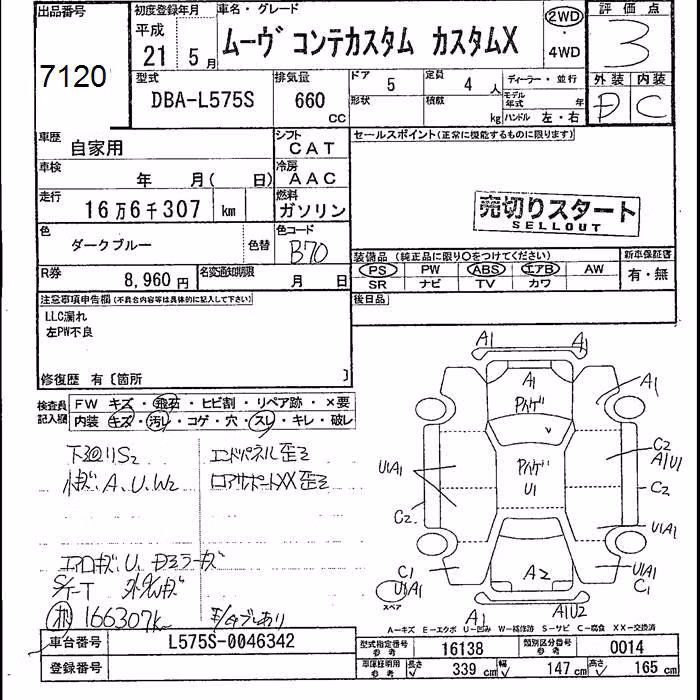 出品番号
7120
初度登録年月
平成
21 5 月
車名・グレード
ムーヴ コンテカスタム カスタムX
2WD
・
4WD
評価点
3
型式
DBA-L575S
排気量
660
CC
ドア
5
定員
4 人
形状
積載
kg
ディーラー・並行
モデル年式
年
ハンドル 左・右
外装 内装
C
車歴
自家用
シフト
CAT
車検
年 月( 日)
冷房
AAC
走行
16万6千307 km
燃料
ガソリン
色
ダークブルー
色替
色コード
B70
R券
8,960 円
名変通知期限
月 日
セールスポイント(正常に機能するものに限ります)
売切りスタート
SELLOUT
装備品 (純正品に限り○をつけてください)
PS PW ABS エアB AW
SR ナビ TV カワ
新車保証書
有・無
後日品
注意事項申告欄(不具合内容等は具体的に記入して下さい)
LLC漏れ
左PW不良
修復歴 有 〔箇所 〕
検査員記入欄
FW キズ・飛石・ヒビ割・リペア跡・×要
内装 キズ・汚レ・コゲ・穴・スレ・キレ・破レ
下回りS2
小キズ A.U.W2
エンドパネル歪ミ
ロアサポートXX歪ミ
エアロキズ U1 Dミラーキズ
S/T-T
166307k
A1 A1
A1
A1
C2
A1U1
U1A1
U1
C2
C2
U1A1
C1
U1A1
スペア
A2
U1A1
C1
A1
A1U2
A-キズ E-エクボ U-凹み W-補修跡 S-サビ C-腐食 XX-交換済
車台番号
L575S-0046342
登録番号
型式指定番号
参考
16138
類別区分番号
参考
0014
車庫証明用
参考
長さ 339 cm 幅 147 cm 高さ 165 cm